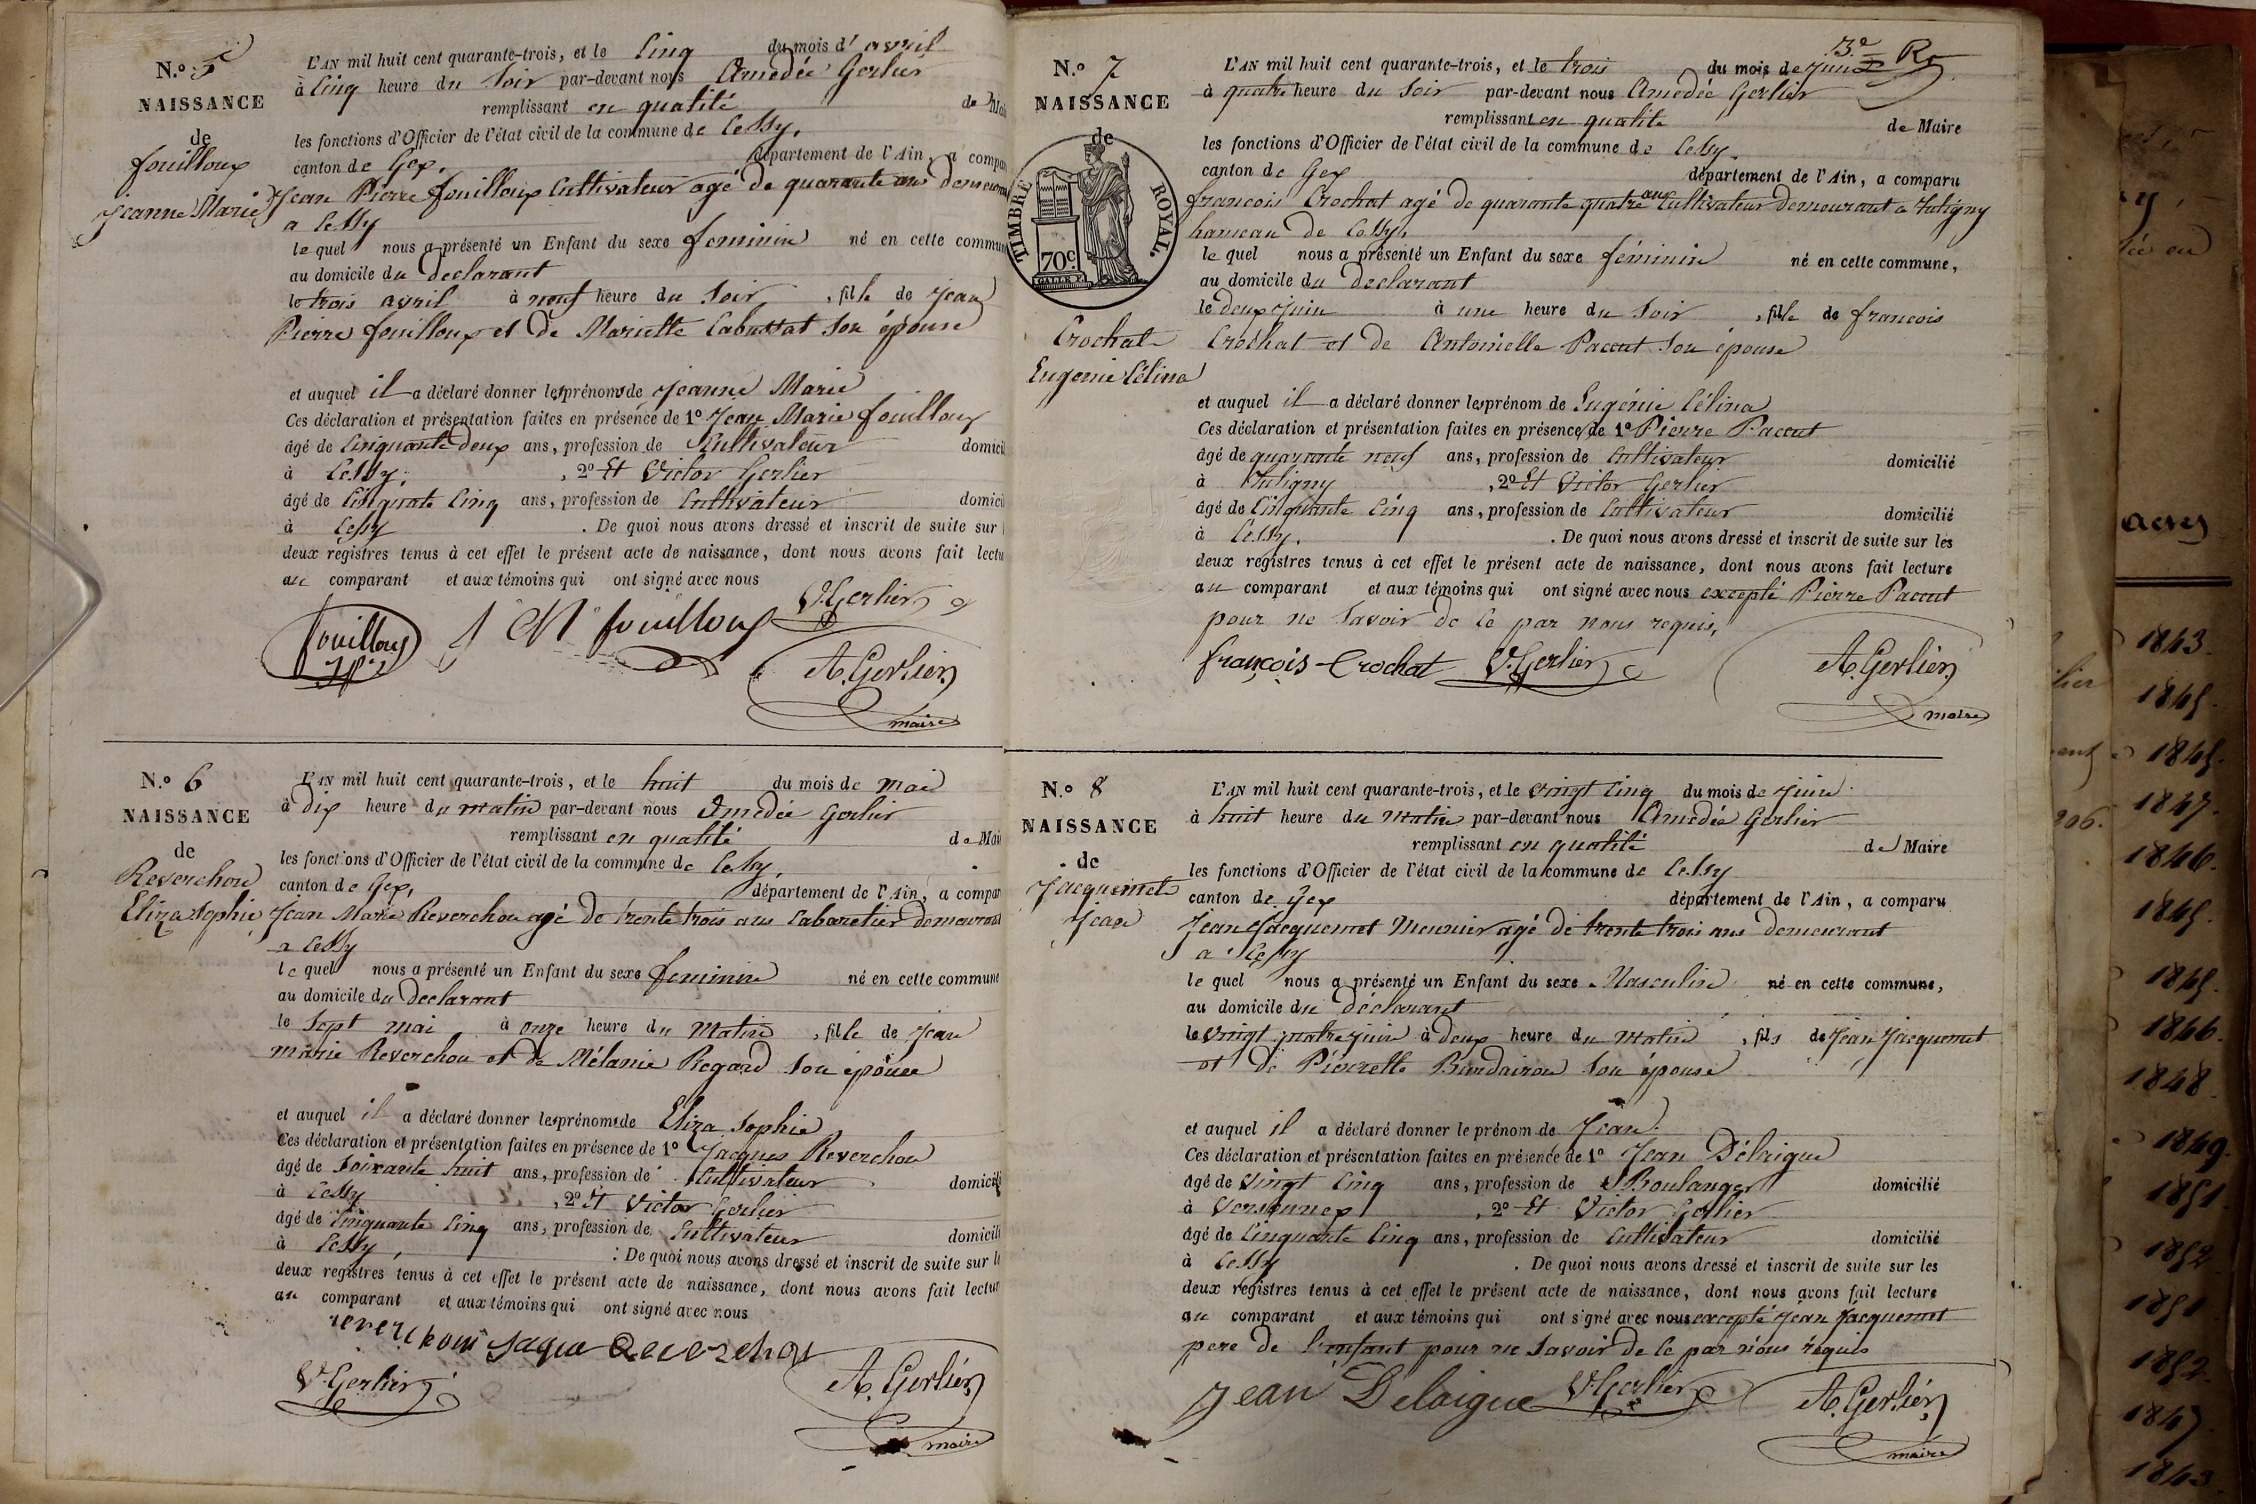 N.º 5
NAISSANCE
de
fouilloux
Jeanne Marie
L'AN mil huit cent quarante-trois, et le Cinq du mois d'avril
à Cinq heure du Soir par-devant nous Amedée Gerlier
remplissant en qualité de Mai
les fonctions d'Officier de l'état civil de la commune de Cessy,
canton de Gex, département de l'Ain, a compa
Jean Pierre fouilloux Cultivateur agé de quarante ans demeurant
a Cessy
le quel nous a présenté un Enfant du sexe feminin né en cette commun
au domicile du declarant
le trois avril à neuf heure du Soir, fille de Jean
Pierre fouilloux et de Mariette Cabussat son épouse
et auquel il a déclaré donner les prénoms de Jeanne Marie
Ces déclaration et présentation faites en présence de 1º Jean Marie fouilloux
âgé de Cinquante deux ans, profession de Cultivateur domicil
à Cessy, , 2º Et Victor Gerlier
âgé de Cinquate Cinq ans, profession de Cultivateur domicil
à Cessy . De quoi nous avons dressé et inscrit de suite sur
deux registres tenus à cet effet le présent acte de naissance, dont nous avons fait lectu
au comparant et aux témoins qui ont signé avec nous
V. Gerlier
fouilloux J M fouilloux
A. Gerlier
maire
N.º 6
NAISSANCE
de
Reverchon
Eliza Sophie
L'AN mil huit cent quarante-trois, et le huit du mois de mai
à dix heure du matin par-devant nous Amedée Gerlier
remplissant en qualité de Mai
les fonctions d'Officier de l'état civil de la commune de Cessy,
canton de Gex, département de l'Ain, a compar
Jean Marie Reverchon agé de trente trois ans Cabaretier demeurant
a Cessy
le quel nous a présenté un Enfant du sexe feminin né en cette commune
au domicile du declarant
le Sept mai à onze heure du Matin, fille de Jean
marie Reverchon et de Mélanie Regard son épouse
et auquel il a déclaré donner les prénoms de Eliza Sophie
Ces déclaration et présentation faites en présence de 1º Jacques Reverchon
âgé de Soixante huit ans, profession de Cultivateur domicili
à Cessy , 2º Et Victor Gerlier
âgé de Cinquante Cinq ans, profession de Cultivateur domicili
à Cessy, . De quoi nous avons dressé et inscrit de suite sur l
deux registres tenus à cet effet le présent acte de naissance, dont nous avons fait lectur
au comparant et aux témoins qui ont signé avec nous
reverchon jaque Reverchon
V. Gerlier A. Gerlier
maire
3.e Rº
N.º 7
NAISSANCE
de
TIMBRE ROYAL.
70c.
Crochat
Eugenie Célina
L'AN mil huit cent quarante-trois, et le trois du mois de Juin
à quatre heure du Soir par-devant nous Amedée Gerlier
remplissant en qualité de Maire
les fonctions d'Officier de l'état civil de la commune de Cessy.
canton de Gex département de l'Ain, a comparu
francois Crochat agé de quarante quatre ans Cultivateur demeurant a Tutigny
hameau de Cessy,
le quel nous a présenté un Enfant du sexe féminin né en cette commune,
au domicile du declarant
le deux Juin à une heure du Soir, fille de francois
Crochat et de Antoinette Paccut son épouse
et auquel il a déclaré donner les prénom de Eugénie Célina
Ces déclaration et présentation faites en présence de 1º Pierre Paccut
âgé de quarante neuf ans, profession de Cultivateur domicilié
à Tutigny , 2º Et Victor Gerlier
âgé de Cinquante Cinq ans, profession de Cultivateur domicilié
à Cessy. . De quoi nous avons dressé et inscrit de suite sur les
deux registres tenus à cet effet le présent acte de naissance, dont nous avons fait lecture
au comparant et aux témoins qui ont signé avec nous excepté Pierre Paccut
pour ne Savoir de ce par nous requis,
françois Crochat V. Gerlier A. Gerlier
maire
N.º 8
NAISSANCE
de
Jacquemet
Jean
L'AN mil huit cent quarante-trois, et le vingt Cinq du mois de Juin
à huit heure du Matin par-devant nous Amedée Gerlier
remplissant en qualité de Maire
les fonctions d'Officier de l'état civil de la commune de Cessy
canton de Gex département de l'Ain, a comparu
Jean Jacquemet Meunier agé de trente trois ans demeurant
a Cessy
le quel nous a présenté un Enfant du sexe Masculin né en cette commune,
au domicile du déclarant
le vingt quatre juin à deux heure du matin, fils de Jean Jacquemet
et de Pierrette Bardairon son épouse
et auquel il a déclaré donner le prénom de Jean.
Ces déclaration et présentation faites en présence de 1º Jean Délaigue
âgé de vingt Cinq ans, profession de Boulanger domicilié
à Versonnex , 2º Et Victor Gerlier
âgé de Cinquante Cinq ans, profession de Cultivateur domicilié
à Cessy . De quoi nous avons dressé et inscrit de suite sur les
deux registres tenus à cet effet le présent acte de naissance, dont nous avons fait lecture
au comparant et aux témoins qui ont signé avec nous excepté Jean Jacquemet
pere de l'enfant pour ne Savoir de ce par nous réquis
Jean Delaigue V. Gerlier A. Gerlier
maire
actes
1843.
1845.
1845.
1847.
1846.
1845.
1845.
1846.
1848
1849.
1851.
1852
1851
1852.
1847.
1843